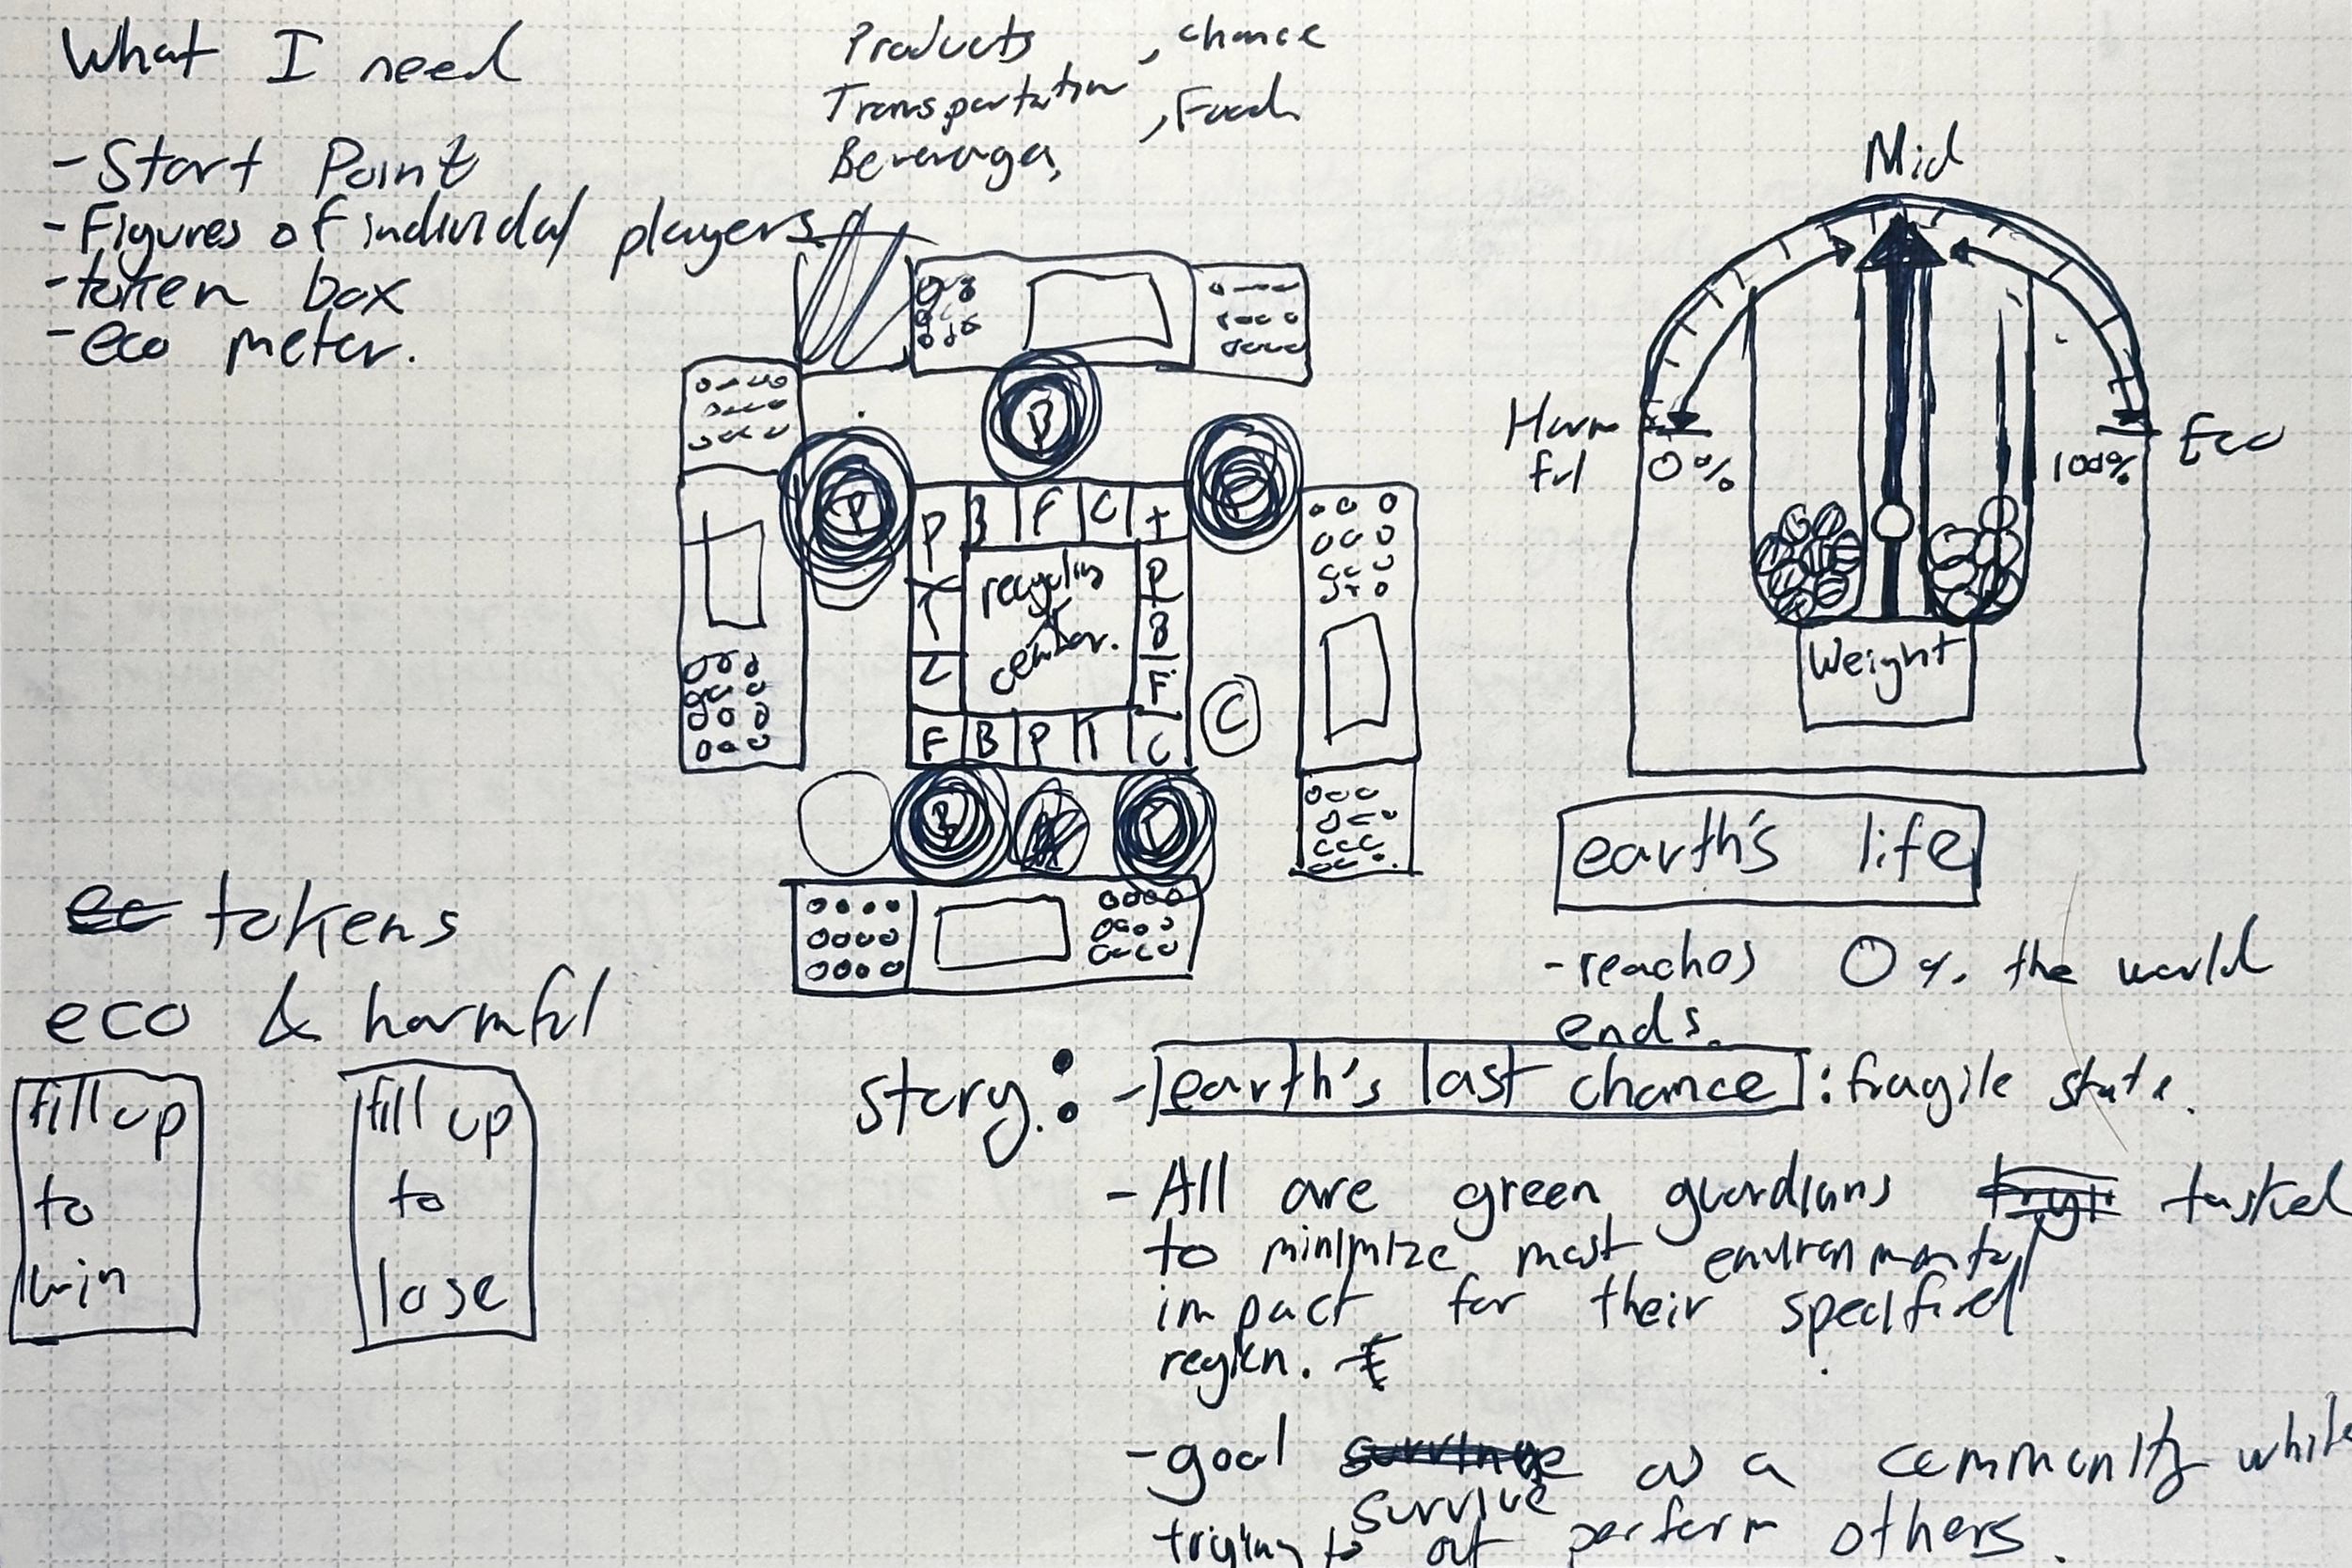 What I need
- Start Point
- Figures of individal players
- token box
- eco meter.
Products , chance
Transportation , Food
Beverages,
B
P
P B F C T
T
C
P
B
F
F B P T C
recycling
center.
C
B
Mid
Harm
ful
0%
100%
Eco
Weight
earth's life
- reaches 0% the world
ends.
tokens
eco & harmful
fill up
to
win
fill up
to
lose
story: - earth's last chance : fragile state.
- All are green guardians tasked
to minimize most environmental
impact for their specified
region.
- goal survive as a community while
trying to out perform others.